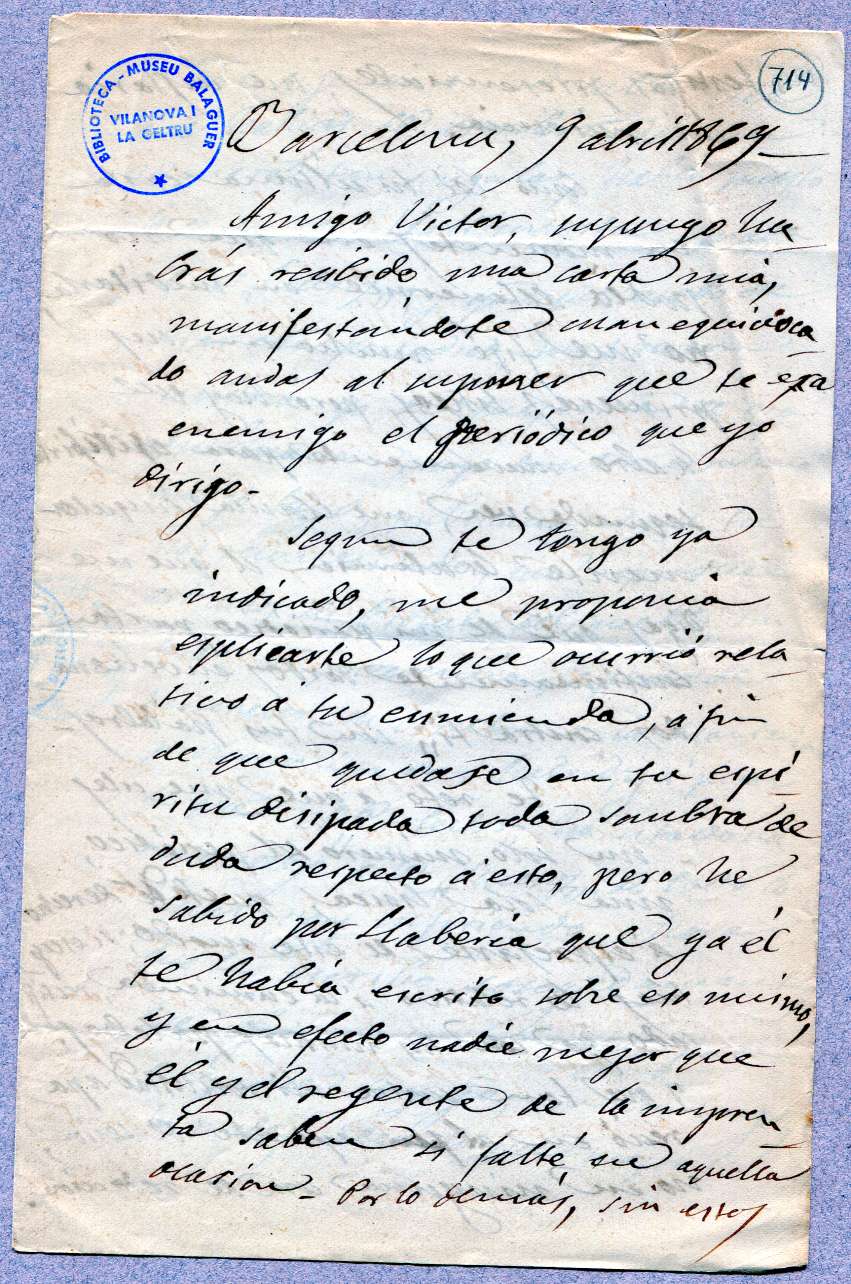 BIBLIOTECA - MUSEU BALAGUER
VILANOVA I
LA GELTRU
714
Barcelona, 9 abril 1869
Amigo Victor, supongo ha
brás recibido una carta mia,
manifestándote cuan equivoca
do andas al suponer que te era
enemigo el periódico que yo
dirigo.
Segun te tengo ya
indicado, me proponia
esplicarte lo que ocurrió rela
tivo á tu enmienda, á fin
de que quedase en tu espí
ritu disipada toda sombra de
duda respecto á esto, pero he
sabido por Llaberia que ya él
te habia escrito sobre eso mismo,
y en efecto nadie mejor que
él y el regente de la impren
ta saben si falté en aquella
ocasion - Por lo demás, sin estos